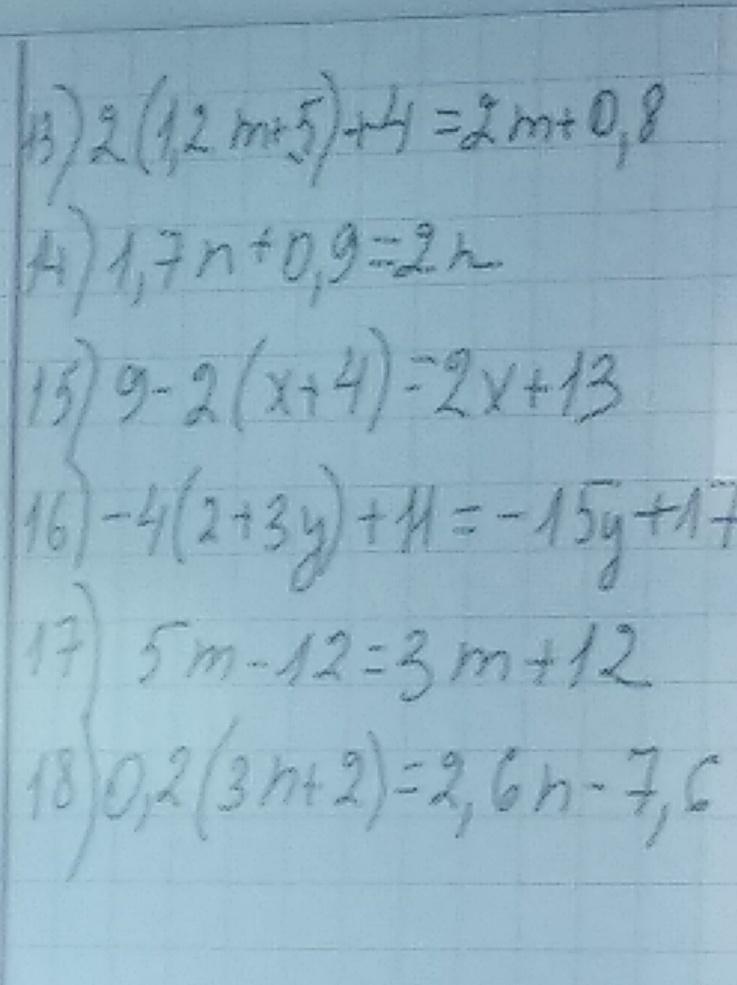 13) 2(1,2m+5)+4=2m+0,8
14) 1,7n+0,9=2n
15) 9-2(x+4)=2x+13
16) -4(2+3y)+11=-15y+17
17) 5m-12=3m+12
18) 0,2(3n+2)=2,6n-7,6